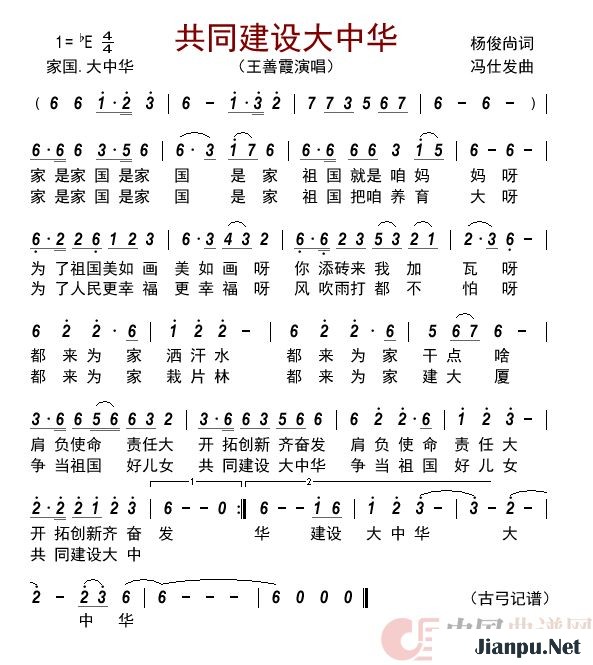 1=♭E 4/4 共同建设大中华 杨俊尚词
家国.大中华 （王善霞演唱） 冯仕发曲
( 6 6 1·2 3 | 6 - - 1·3 | 7 7 3 5 6 7 | 6 - - - ) |
6·6 6 3·5 5 6 | 6·3 1 7 6 | 6·6 6 6 3 1 5 | 6 - 6 - |
家 是家 国 是家 国 是 家 祖 国 就是 咱 妈 妈 呀
家 是家 国 是家 国 是 家 祖 国 把咱 养 育 大 呀
6·2 2 6 1 2 3 | 6·6 4 3 2 | 6·6 5 3 5 3 2 1 | 2·3 6 - |
为 了祖国美如 画 美 如 画 呀 你 添砖来 我 加 瓦 呀
为 了人民更幸 福 更 幸 福 呀 风 吹雨打 都 不 怕 呀
6 2 2·6 | 1 2 2 - | 6 2 2·6 | 5 6 7 6 - |
都 来 为 家 洒 汗 水 都 来 为 家 干 点 啥
都 来 为 家 栽 片 林 都 来 为 家 建 大 厦
3·6 6 5 6 6 3 2 | 1·6 6 1 5 6 3 | 6 2 2·6 | 1 2 3 - |
肩 负使命 责任大 开 拓创新 齐奋发 肩 负 使 命 责 任 大
争 当祖国 好儿女 共 同建设 大中华 争 当 祖 国 好 儿 女
1 2
2·2 2 1 2 3 | 6 - - 0 :| 6 - - 1 6 | 2 2 3 - | 3 - - 2 |
开 拓创新齐 奋 发 华 建设 大 中华 大
共 同建设大 中
2 - 2 3 | 6 - - - | 6 - - - | 6 0 0 0 ‖
中 华 （古弓记谱）
中国曲谱网
Jianpu.Net